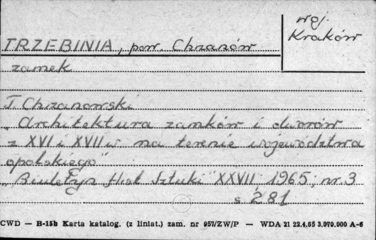 TRZEBINIA, pow. Chrzanów
woj. Kraków
zamek
T. Chrzanowski
"Architektura zamków i dworów
z XVI i XVII w. na terenie województwa
opolskiego"
"Biuletyn Hist Sztuki" XXVII 1965, nr. 3
s. 281
CWD — B-15b Karta katalog. (z liniat.) zam. nr 957/ZW/P — WDA 21 22.4.65 3.970.000 A-6